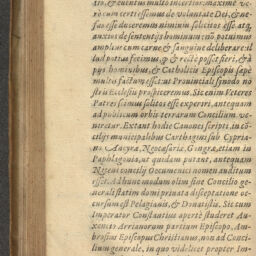 tio, & euentus multo incertior: maximè ve-
rò cum certi essemus de voluntate Dei, & ne-
fas esse duceremus nimium sollicitos esse
auxios de sententijs hominum: nō potuimus
ampliùs cum carne & sanguine deliberare: il
lud potius fecimus, & rectè posset fieri, & à
pijs hominibus, & Catholicis Episcopis sæpè
multò factum esset: vt Prouinciali synodo no
stris Ecclesijs prospiceremus. Sic enim Veteres
Patres scimus solitos esse experiri, antequam
ad publicum orbis terrarum Concilium ve-
niretur. Extant hodie Canones scripti, in cō-
cilijs municipalibus Carthagine sub Cypria-
no Ancyræ, Neocæsariæ, Gangræ, etiam in
Paphlagonia, vt quidam putant, antequam
Niceni concilij Oecumenici nomen auditum
esset. Ad hunc modum olim sine Concilio ge-
nerali statim domi priuata disceptatione oc-
cursum est Pelagianis, & Donatistis. Sic cum
Imperator Constantius apertè studeret Au-
xentio Arrianorum partium Episcopo, Am-
brosius Episcopus Christianus, non ad Conci-
lium generale, in quo videlicet propter Im-